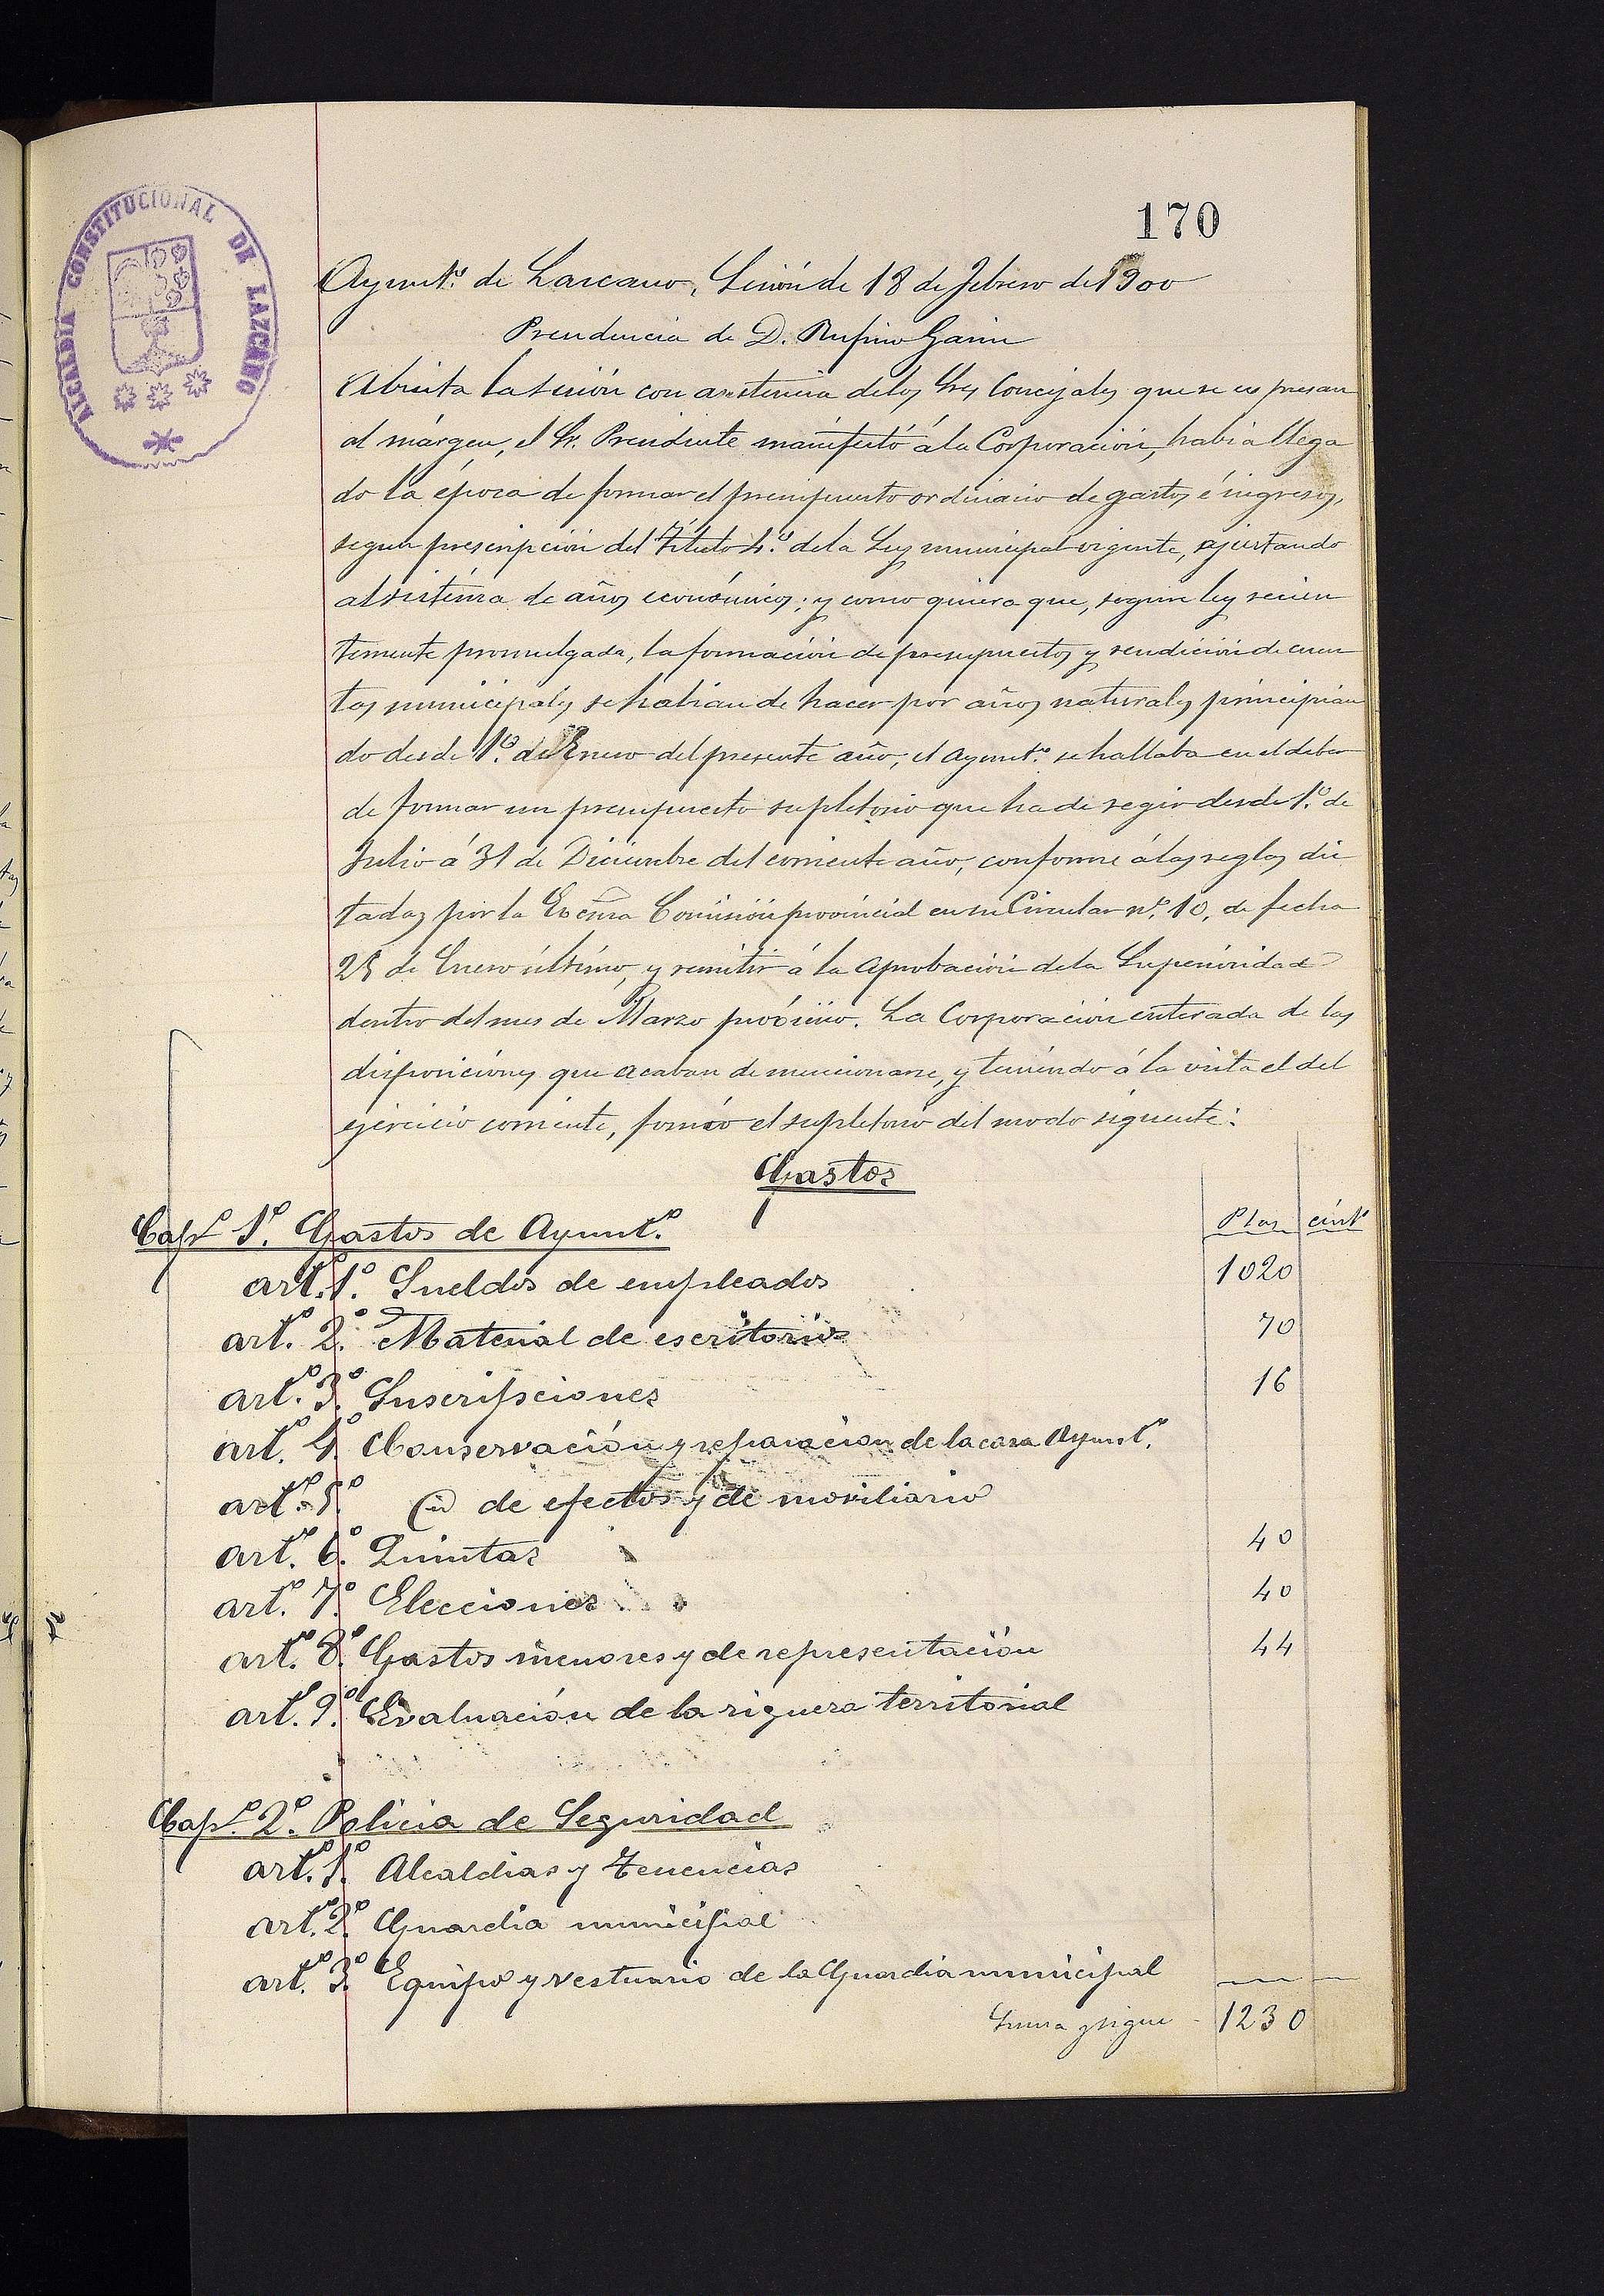 170
ALCALDÍA CONSTITUCIONAL DE LAZCANO
Ayunt.º de Lazcano, Sesión de 18 de Febrero de 1900
Presidencia de D. Rufino Garin
Abierta la sesión con asistencia de los Sres Concejales que se espresan
al márgen, el Sr. Presidente manifestó á la Corporación, habia llega
do la época de formar el presupuesto ordinario de gastos é ingresos,
segun prescripción del Título 4.º de la Ley municipal vigente, ajustando
al sistema de años económicos; y como quiera que, segun ley recien
temente promulgada, la formación de presupuestos y rendición de cuen
tas municipales se habian de hacer por años naturales principian
do desde 1.º de Enero del presente año, el Ayunt.º se hallaba en el deber
de formar un presupuesto supletorio que ha de regir desde 1.º de
Julio á 31 de Diciembre del corriente año, conforme á las reglas dic
tadas por la Excma Comisión provincial en su Circular nº. 10, de fecha
25 de Enero último, y remitir á la aprobación de la Superioridad
dentro del mes de Marzo próximo. La Corporación enterada de las
disposiciones que acaban de mencionarse, y teniendo á la vista el del
ejercicio corriente, formó el supletorio del modo siguiente:
Gastos
Capº 1º. Gastos de Ayunt.º
Ptas cints
artº. 1º. Sueldos de empleados 1020
artº. 2º. Material de escritorio 70
artº. 3º. Suscripciones 16
artº. 4º. Conservación y reparación de la casa Ayuntº.
artº. 5º. (id de efectos y de moviliario
artº. 6º. Quintas 40
artº. 7º. Elecciones 40
artº. 8º. Gastos menores y de representación 44
artº. 9º. Evaluación de la riqueza territorial
Capº. 2º. Policia de Seguridad
artº. 1º. Alcaldias y Tenencias
artº. 2º. Guardia municipal
artº. 3º. Equipo y vestuario de la Guardia municipal
Suma y sigue - 1230